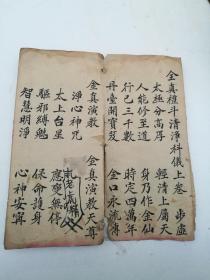 全真禳斗清淨科儀上卷 步虛
太極分高厚 輕清上屬天
人能修至道 身乃作金仙
行已三千數 時定四萬年
丹臺開寶笈 金口永流傳
全真演教 全真演教天尊
淨心神咒
太上台星 應變無停
驅邪縛魅 保命護身
智慧明淨 心神安寧